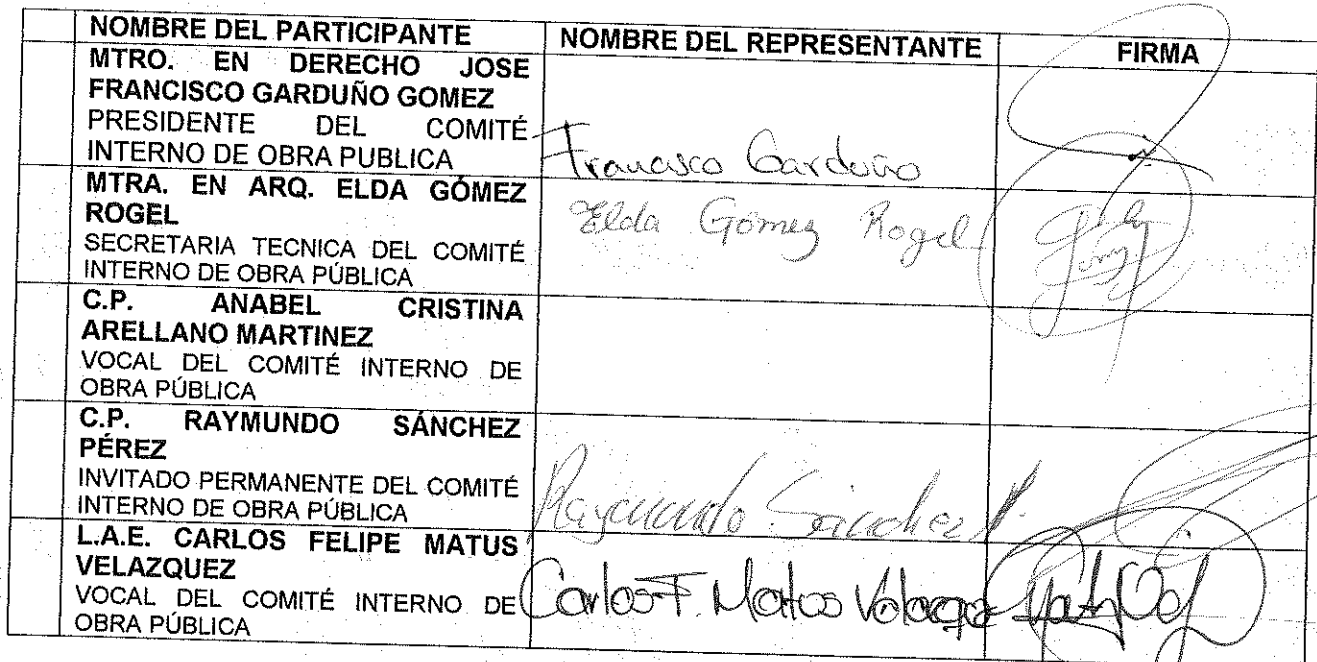 NOMBRE DEL PARTICIPANTE NOMBRE DEL REPRESENTANTE FIRMA
MTRO. EN DERECHO JOSE
FRANCISCO GARDUÑO GOMEZ
PRESIDENTE DEL COMITÉ
INTERNO DE OBRA PUBLICA
Francisco Garduño
MTRA. EN ARQ. ELDA GÓMEZ
ROGEL
SECRETARIA TECNICA DEL COMITÉ
INTERNO DE OBRA PÚBLICA
Elda Gómez Rogel
C.P. ANABEL CRISTINA
ARELLANO MARTINEZ
VOCAL DEL COMITÉ INTERNO DE
OBRA PÚBLICA
C.P. RAYMUNDO SÁNCHEZ
PÉREZ
INVITADO PERMANENTE DEL COMITÉ
INTERNO DE OBRA PÚBLICA
Raymundo Sánchez P.
L.A.E. CARLOS FELIPE MATUS
VELAZQUEZ
VOCAL DEL COMITÉ INTERNO DE
OBRA PÚBLICA
Carlos F. Matus